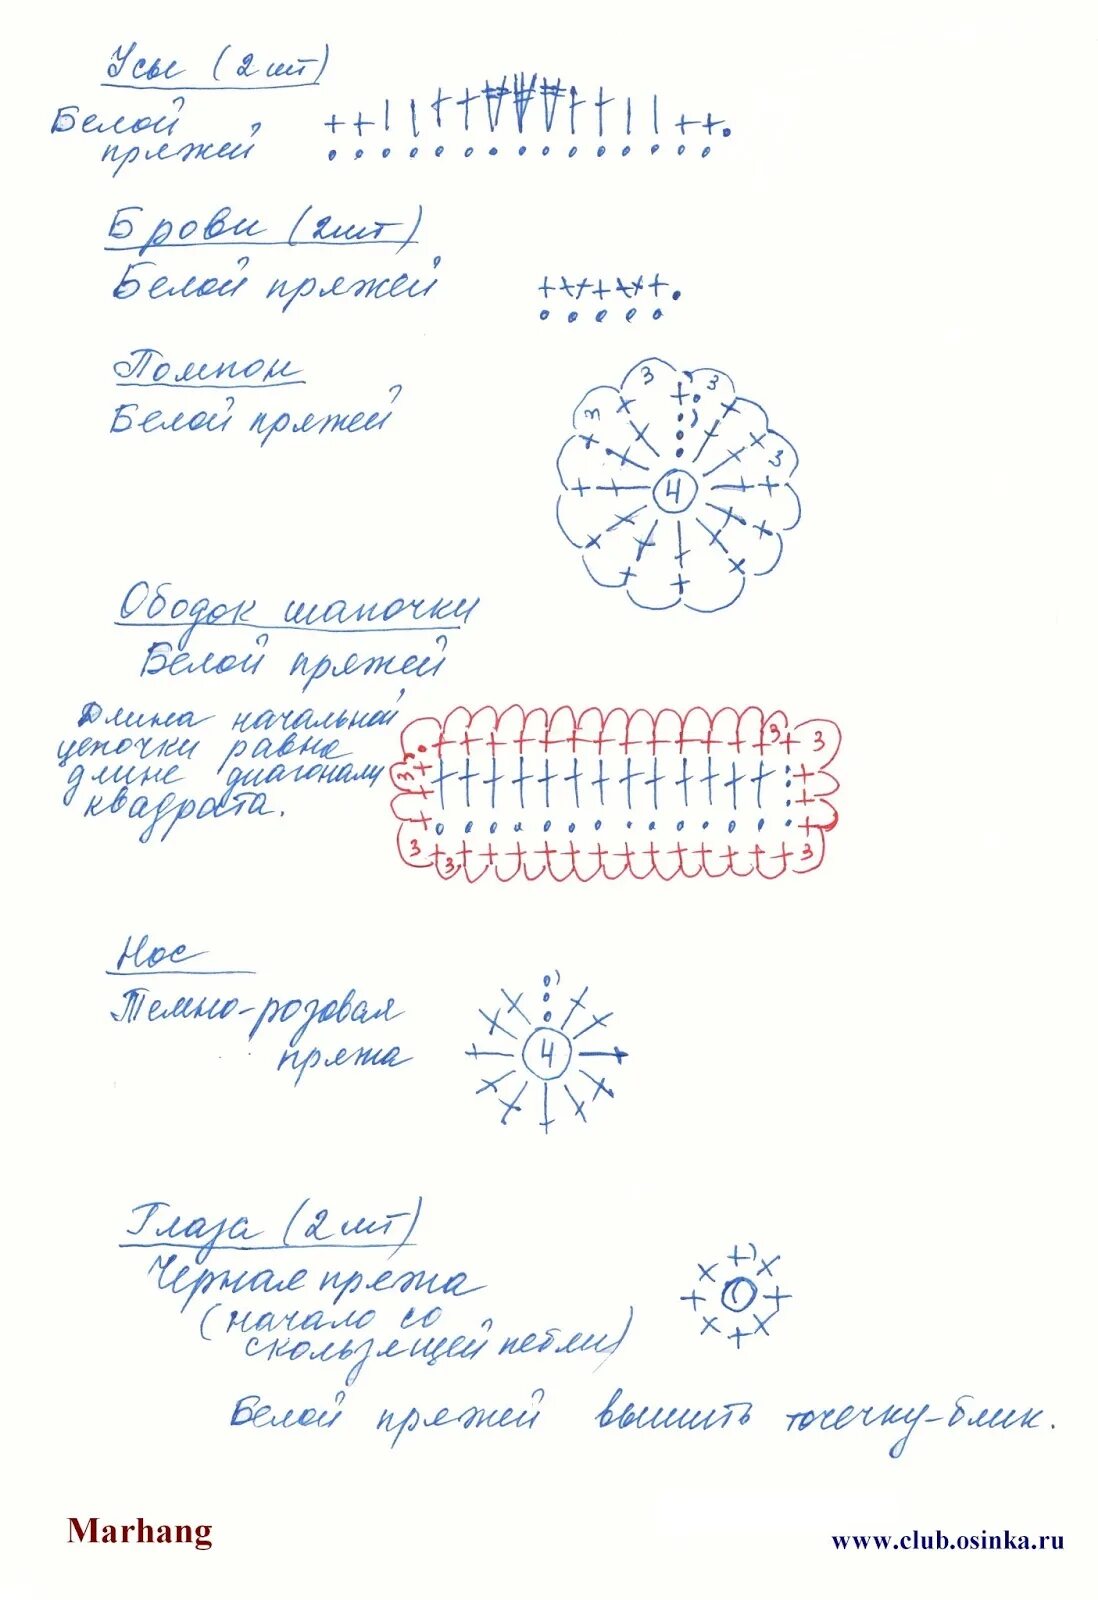 Усы (2 шт)
Белой
пряжей
Брови (2 шт)
Белой пряжей
Помпон
Белой пряжей
3 3
3
3
4
Ободок шапочки
Белой пряжей
Длина начальной
цепочки равна
длине диагонали
квадрата.
3 3
3
3 3 3
Нос
Темно-розовая
пряжа
4
Глаза (2 шт)
Черная пряжа
(начало со
скользящей петли)
Белой пряжей вышить точечку-блик.
Marhang
www.club.osinka.ru